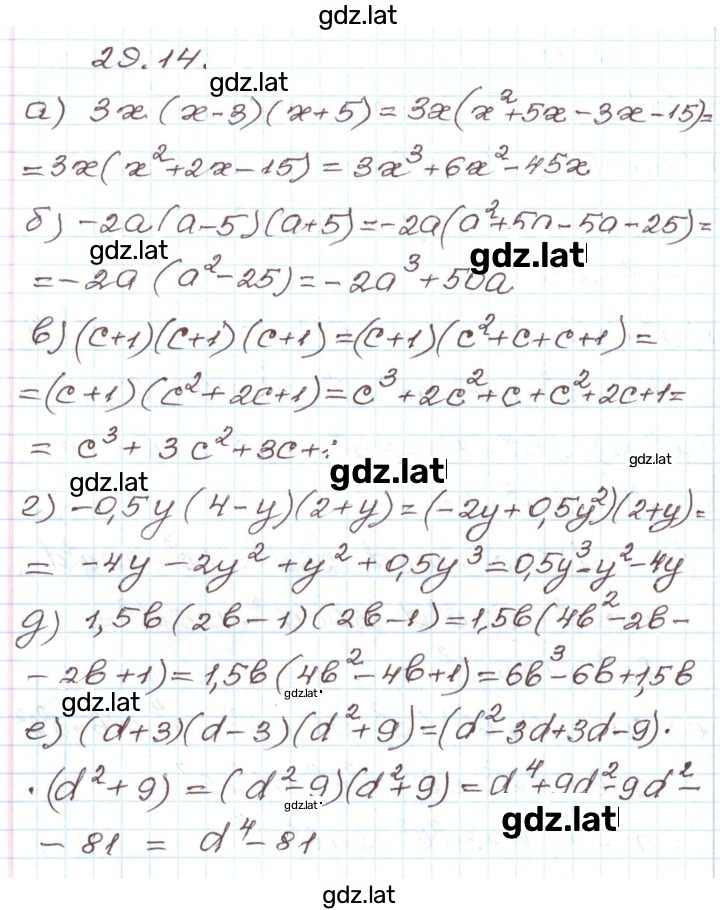 gdz.lat
29.14.
gdz.lat
а) 3x(x-3)(x+5) = 3x(x²+5x-3x-15)=
=3x(x²+2x-15) = 3x³+6x²-45x
б) -2a(a-5)(a+5)=-2a(a²+5a-5a-25)=
gdz.lat
gdz.lat
=-2a(a²-25)=-2a³+50a
в)(c+1)(c+1)(c+1)=(c+1)(c²+c+c+1)=
=(c+1)(c²+2c+1)=c³+2c²+c+c²+2c+1=
= c³+3c²+3c+
gdz.lat
gdz.lat
gdz.lat
г) -0,5y(4-y)(2+y)=(-2y+0,5y²)(2+y)=
= -4y-2y²+y²+0,5y³=0,5y³-y²-4y
д) 1,5b(2b-1)(2b-1)=1,5b(4b²-2b-
-2b+1)=1,5b(4b²-4b+1)=6b³-6b+1,5b
gdz.lat
gdz.lat
е) (d+3)(d-3)(d²+9)=(d²-3d+3d-9)·
·(d²+9) = (d²-9)(d²+9)=d⁴+9d²-9d²-
gdz.lat
gdz.lat
-81 = d⁴-81
gdz.lat